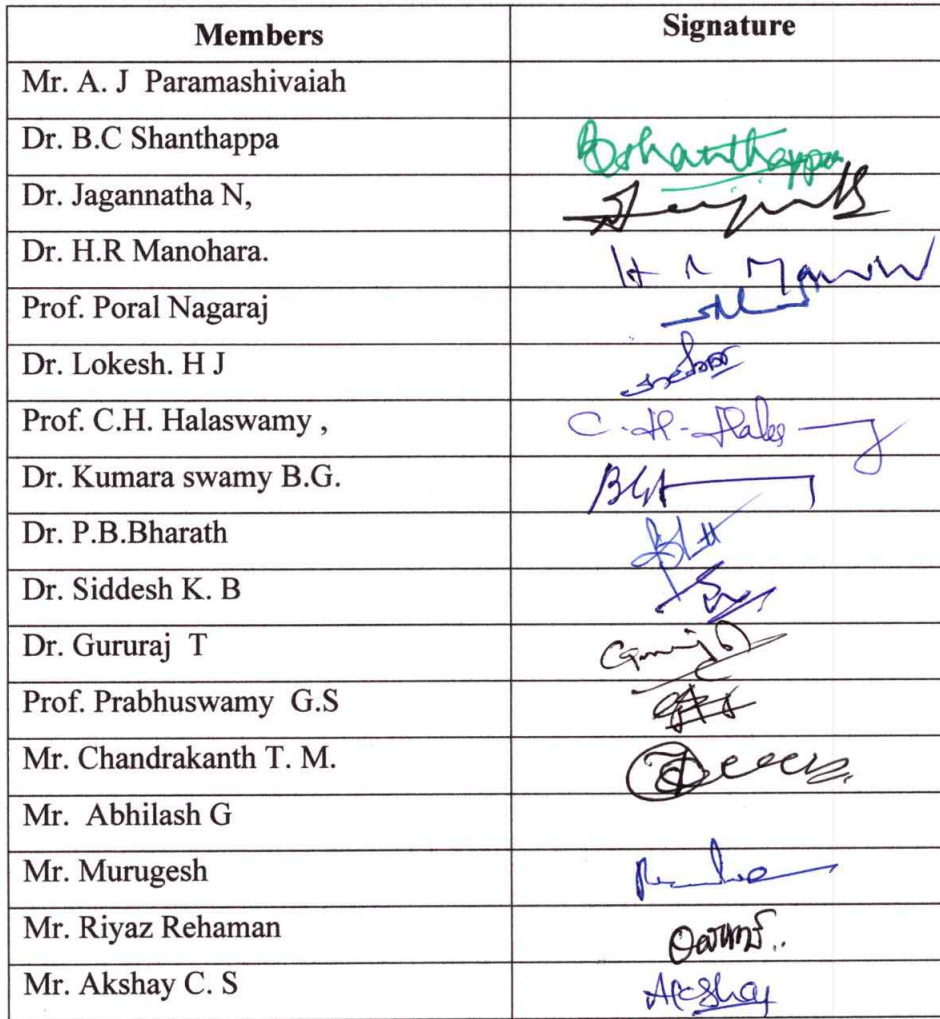 Members Signature
Mr. A. J Paramashivaiah
Dr. B.C Shanthappa Bshanthappa
Dr. Jagannatha N,
Dr. H.R Manohara.
Prof. Poral Nagaraj
Dr. Lokesh. H J
Prof. C.H. Halaswamy , C.H-Hales
Dr. Kumara swamy B.G. BGA
Dr. P.B.Bharath
Dr. Siddesh K. B
Dr. Gururaj T
Prof. Prabhuswamy G.S
Mr. Chandrakanth T. M.
Mr. Abhilash G
Mr. Murugesh
Mr. Riyaz Rehaman
Mr. Akshay C. S Akshay